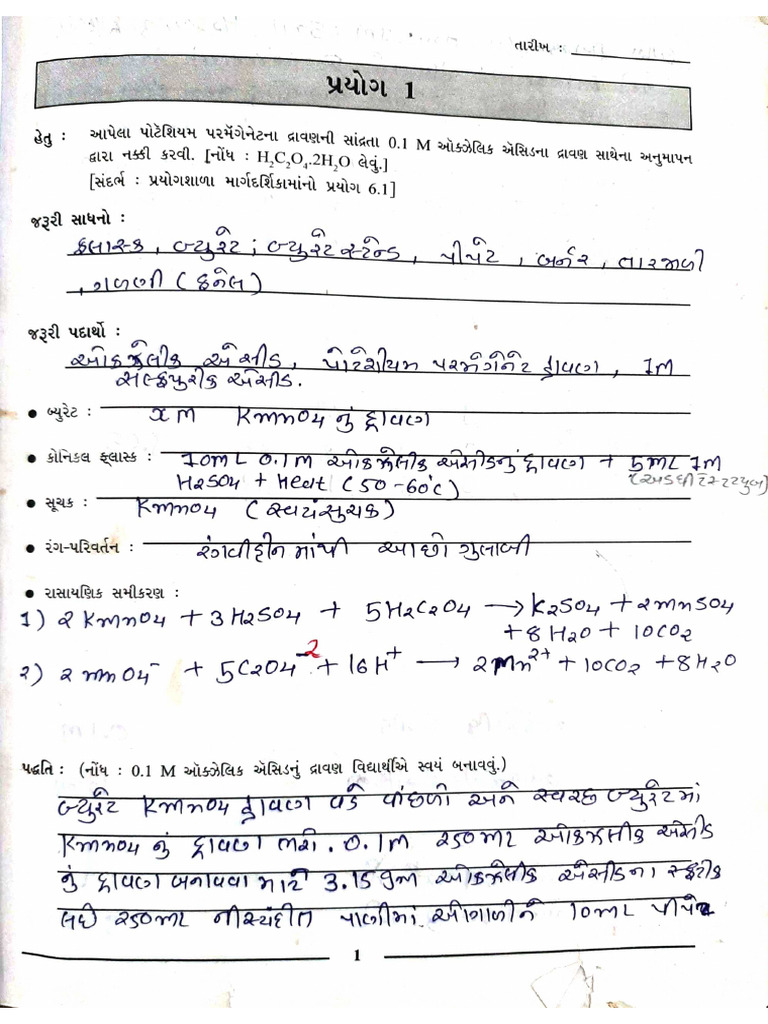 તારીખ :
પ્રયોગ 1
હેતુ : આપેલા પોટેશિયમ પરમૅંગેનેટના દ્રાવણની સાંદ્રતા 0.1 M ઑક્ઝેલિક ઍસિડના દ્રાવણ સાથેના અનુમાપન
દ્વારા નક્કી કરવી. [નોંધ : H₂C₂O₄.2H₂O લેવું.]
[સંદર્ભ : પ્રયોગશાળા માર્ગદર્શિકામાંનો પ્રયોગ 6.1]
જરૂરી સાધનો :
ફલાસ્ક, બ્યુરેટ, બ્યુરેટ સ્ટેન્ડ, પીપેટ, બર્નર, તારજાળી
, ગળણી (ફનેલ)
જરૂરી પદાર્થો :
ઓકઝેલીક એસીડ, પોટેશીયમ પરમેંગેનેટ દ્રાવણ, 1M
સલ્ફ્યુરીક એસીડ.
● બ્યુરેટ : xM KMnO4 નું દ્રાવણ
● કોનિકલ ફ્લાસ્ક : 10mL 0.1M ઓકઝેલીક એસીડનું દ્રાવણ + 5mL 1M
H2SO4 + Heat (50-60°C) (અડધી ટેસ્ટટ્યુબ)
● સૂચક : KMnO4 (સ્વયંસુચક)
● રંગ-પરિવર્તન : રંગવીહીન માંથી આછો ગુલાબી
● રાસાયણિક સમીકરણ :
1) 2KMnO4 + 3H2SO4 + 5H2C2O4 → K2SO4 + 2MnSO4
+ 8H2O + 10CO2
2) 2MnO4⁻ + 5C2O4⁻² + 16H⁺ → 2Mn²⁺ + 10CO2 + 8H2O
પદ્ધતિ : (નોંધ : 0.1 M ઑક્ઝેલિક ઍસિડનું દ્રાવણ વિદ્યાર્થીએ સ્વયં બનાવવું.)
બ્યુરેટ KMnO4 દ્રાવણ વડે વીંછળી અને સ્વચ્છ બ્યુરેટમાં
KMnO4 નું દ્રાવણ ભરી. 0.1M 250mL ઓકઝેલીક એસીડ
નું દ્રાવણ બનાવવા માટે 3.15gm ઓકઝેલીક એસીડના સ્ફટીક
લઈ 250mL નીસ્યંદીત પાણીમાં ઓગાળીને 10mL પીપેટ
1